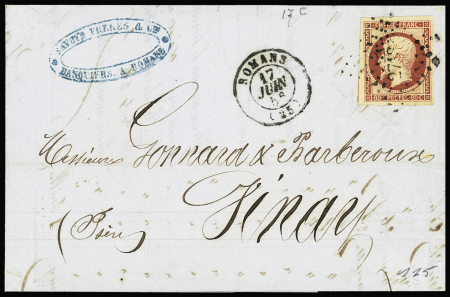 17 c
SAVOYE FRERES & Cie
BANQUIERS, A ROMANS
ROMANS
17
JUIN
56
(25)
FRANC
80 POSTES 80 C
Messieurs Gonnard & Barberoux
Vinay
(Isère)
125